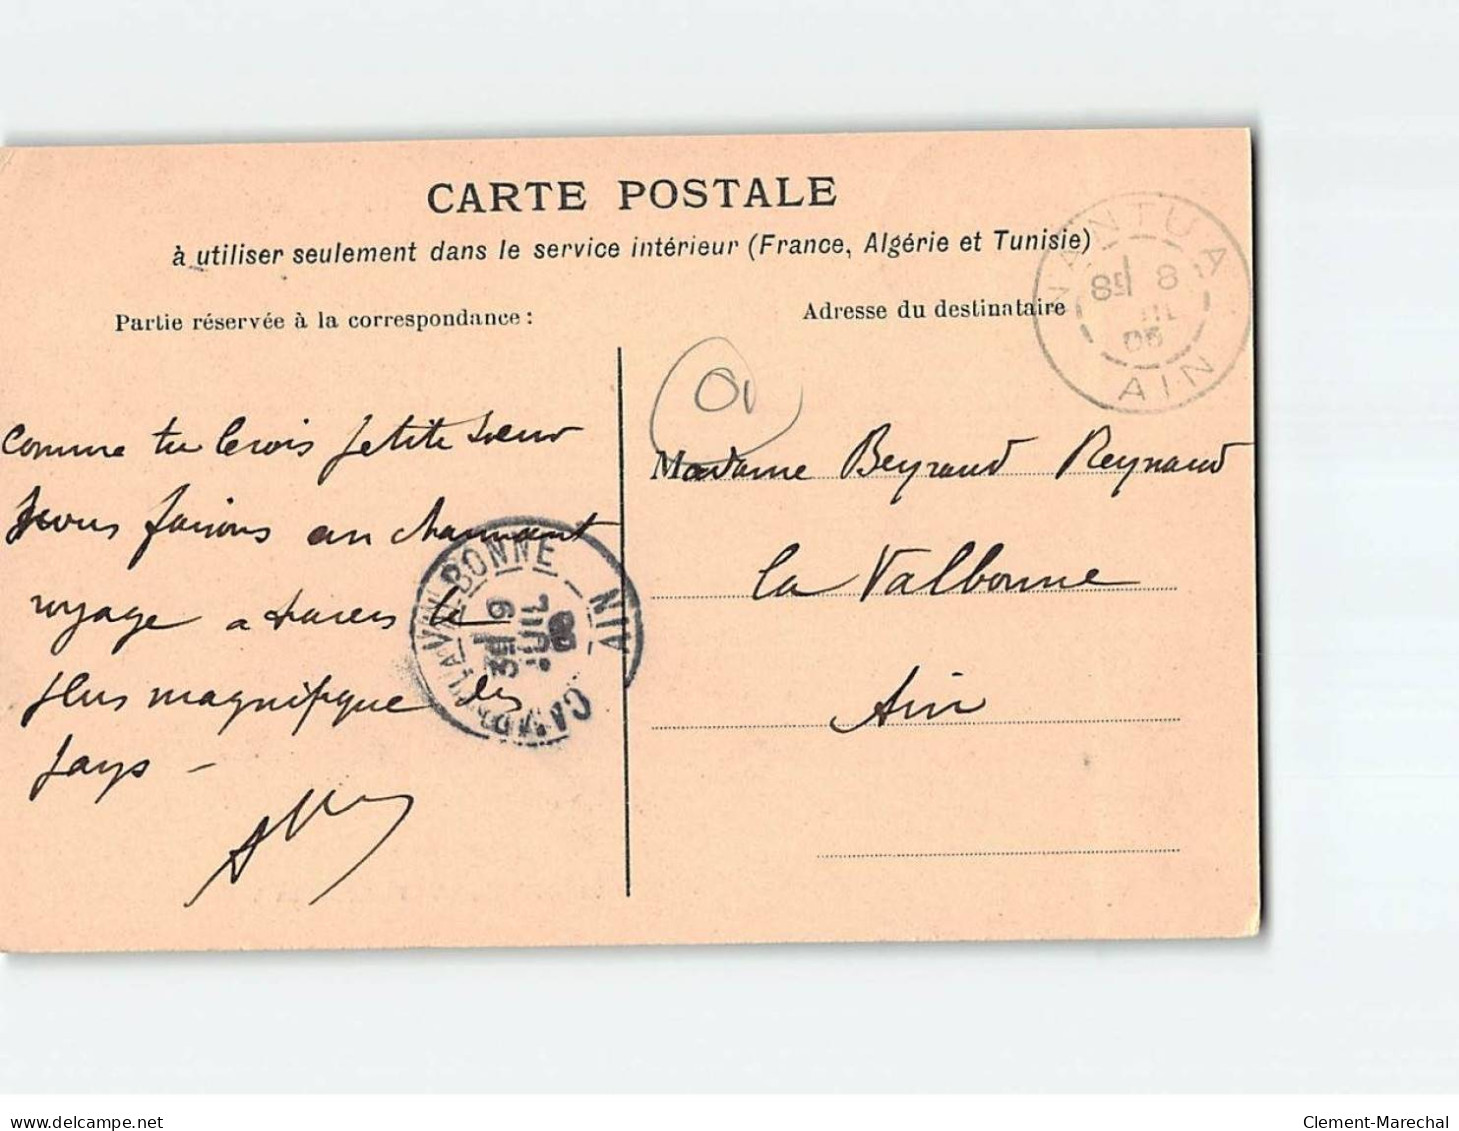 CARTE POSTALE
à utiliser seulement dans le service intérieur (France, Algérie et Tunisie)
Partie réservée à la correspondance :
Adresse du destinataire
NANTUA
8
05
AIN
01
Comme tu le vois petite soeur
nous faisons un charmant
voyage a travers le
plus magnifique des
pays -
Madame Beyraud Reynaud
la Valbonne
Ain
CAMP DE LA VALBONNE
AIN
9
JUIL
delcampe.net
Clement-Marechal